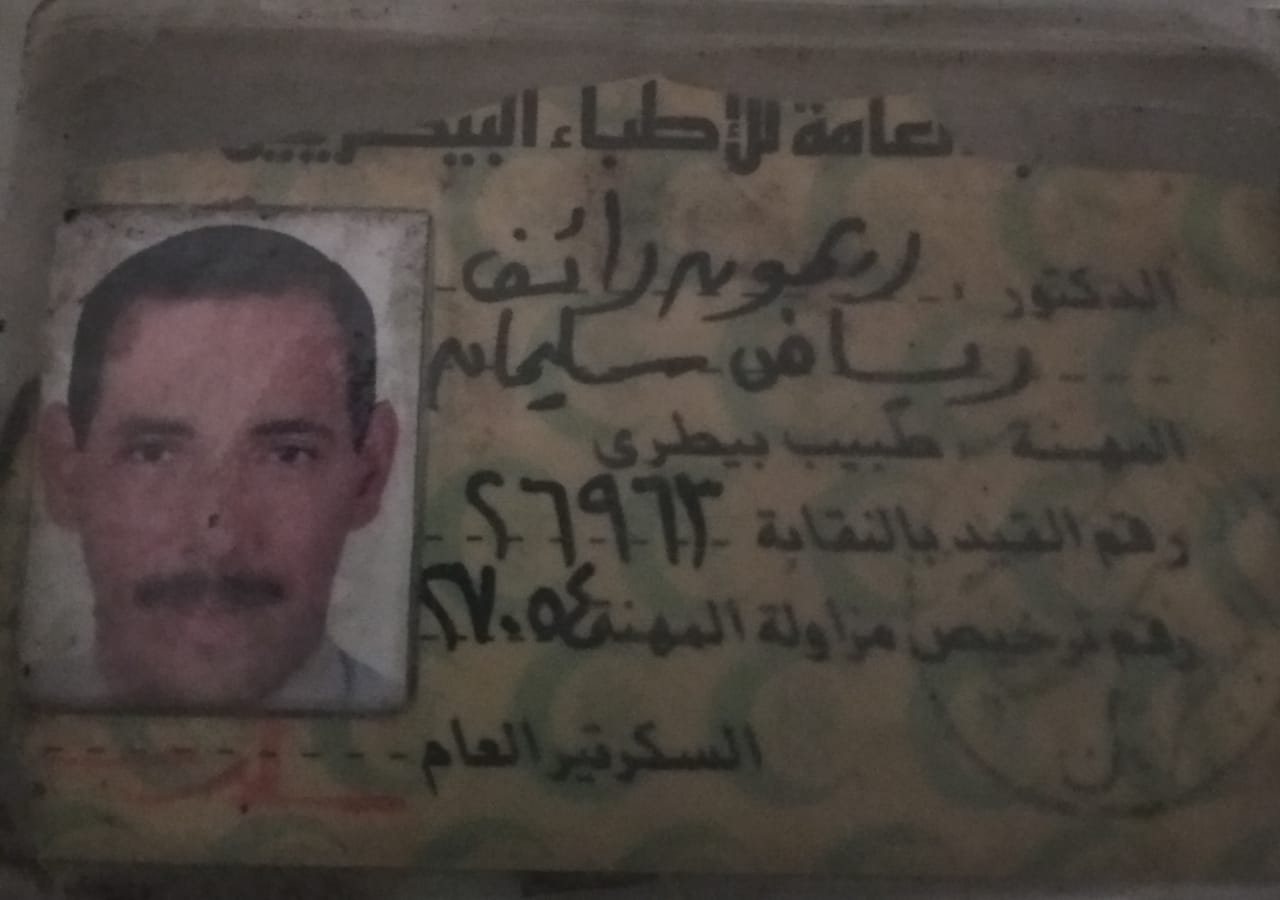 عامة للأطباء البيطريين
الدكتور ريمون رائف
رياض سليمان
المهنة طبيب بيطرى
رقم القيد بالنقابة ٢٦٩٦٣
رقم ترخيص مزاولة المهنة
السكرتير العام